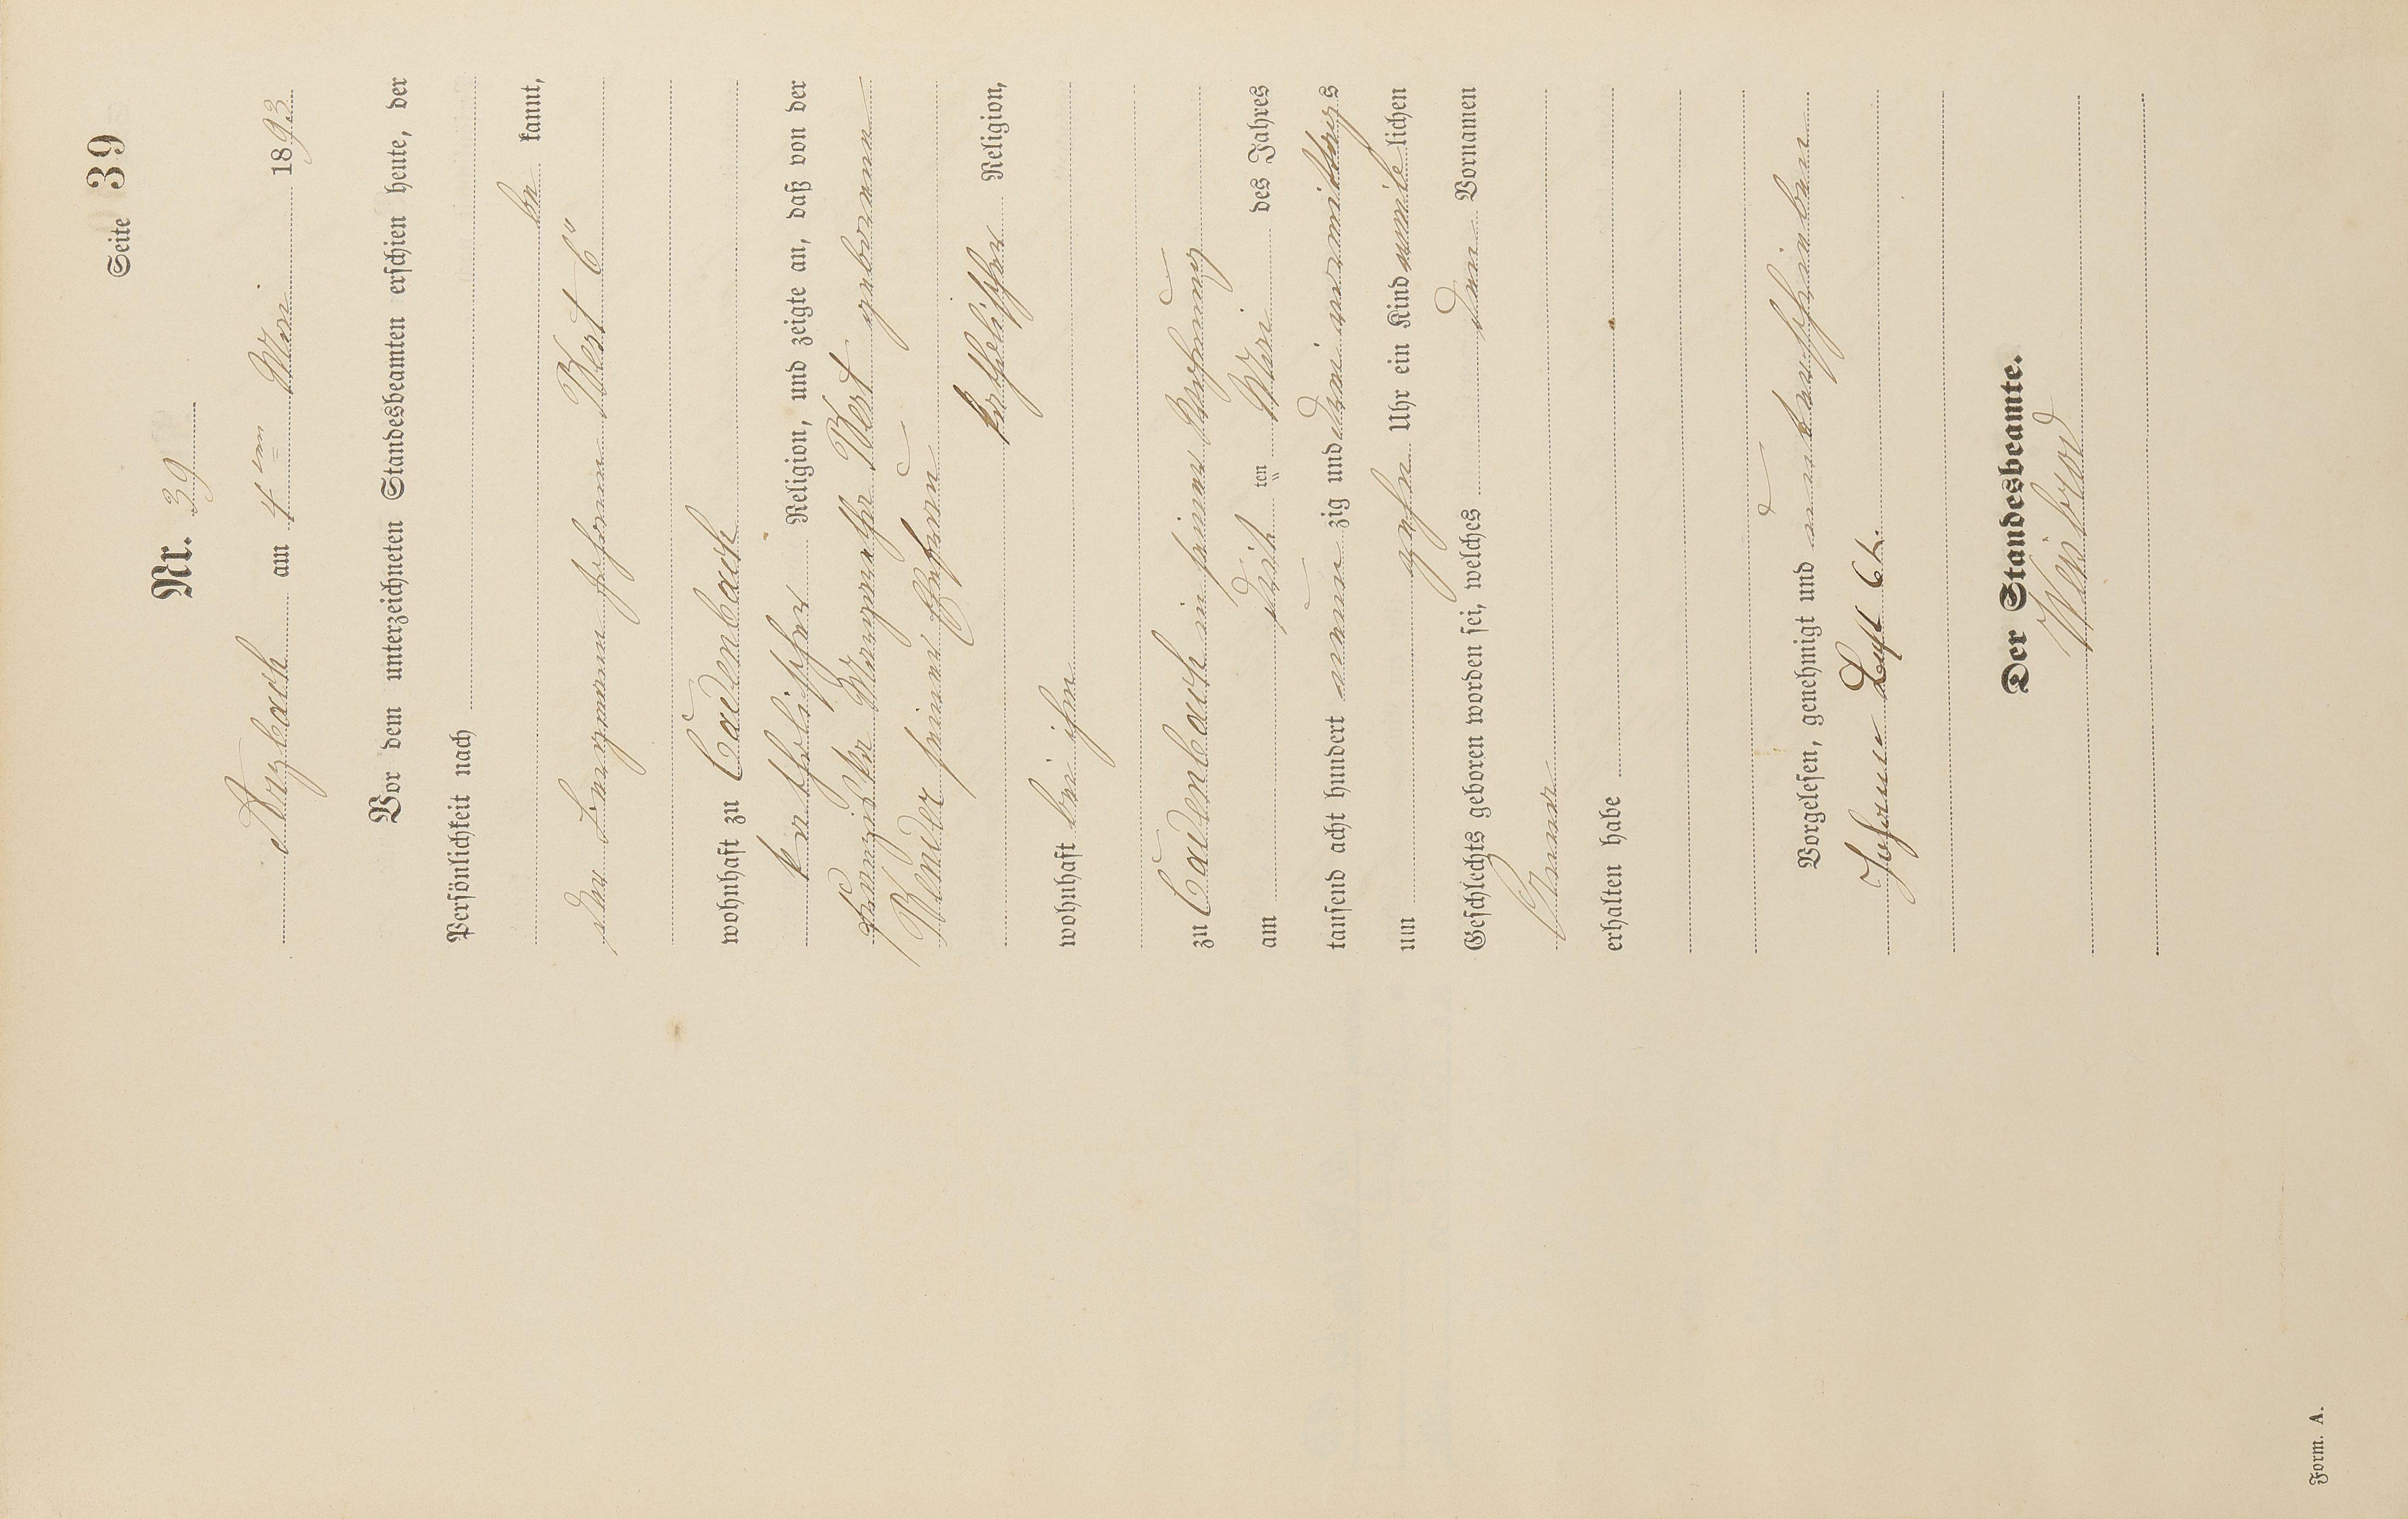 Seite 39
Nr. 39
Arzbach am 4ten Mai 1893
Vor dem unterzeichneten Standesbeamten erschien heute, der
Persönlichkeit nach
be kannt,
der Bergmann Johann
wohnhaft zu Cadenbach
katholischer Religion, und zeigte an, daß von der
Margaretha geborene
Bender seiner Ehefrau
katholischer Religion,
wohnhaft bei ihm
zu Cadenbach in seiner Wohnung
am drit ten Mai des Jahres
tausend acht hundert neun zig und drei vormittags
um zehn Uhr ein Kind weib lichen
Geschlechts geboren worden sei, welches den Vornamen
Anna
erhalten habe
Vorgelesen, genehmigt und unterschrieben
Johann
Der Standesbeamte.
Form. A.